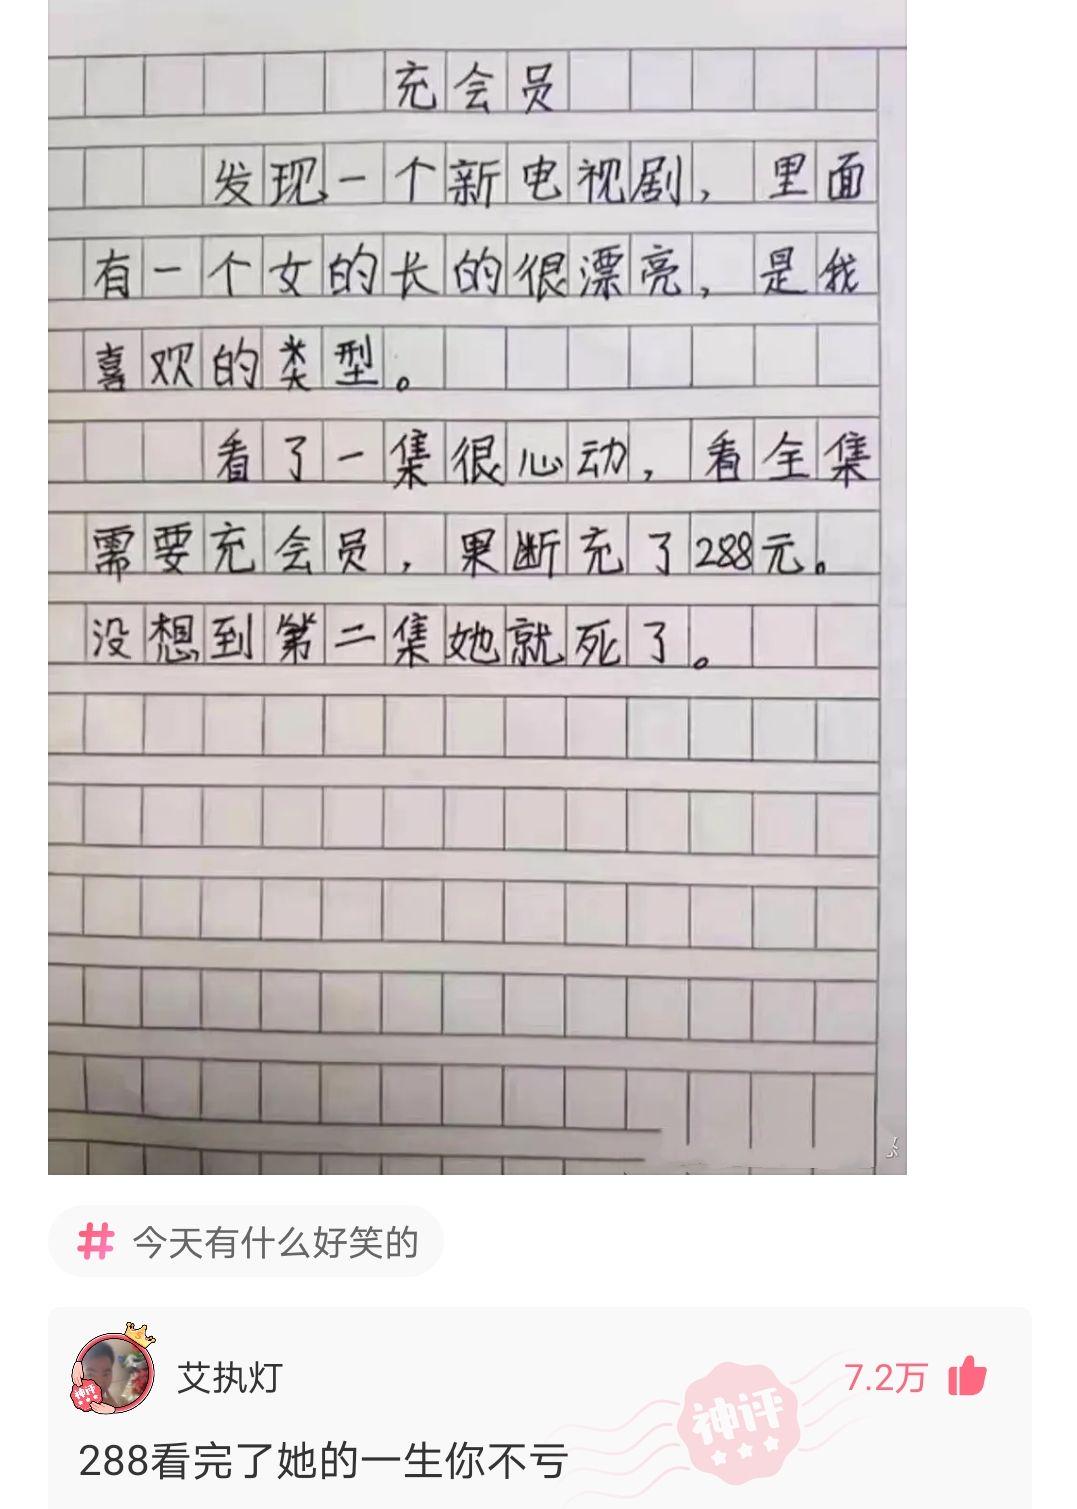 充会员
发现一个新电视剧，里面
有一个女的长的很漂亮，是我
喜欢的类型。
看了一集很心动，看全集
需要充会员，果断充了288元。
没想到第二集她就死了。
# 今天有什么好笑的
神评
艾执灯
7.2万
神评
288看完了她的一生你不亏